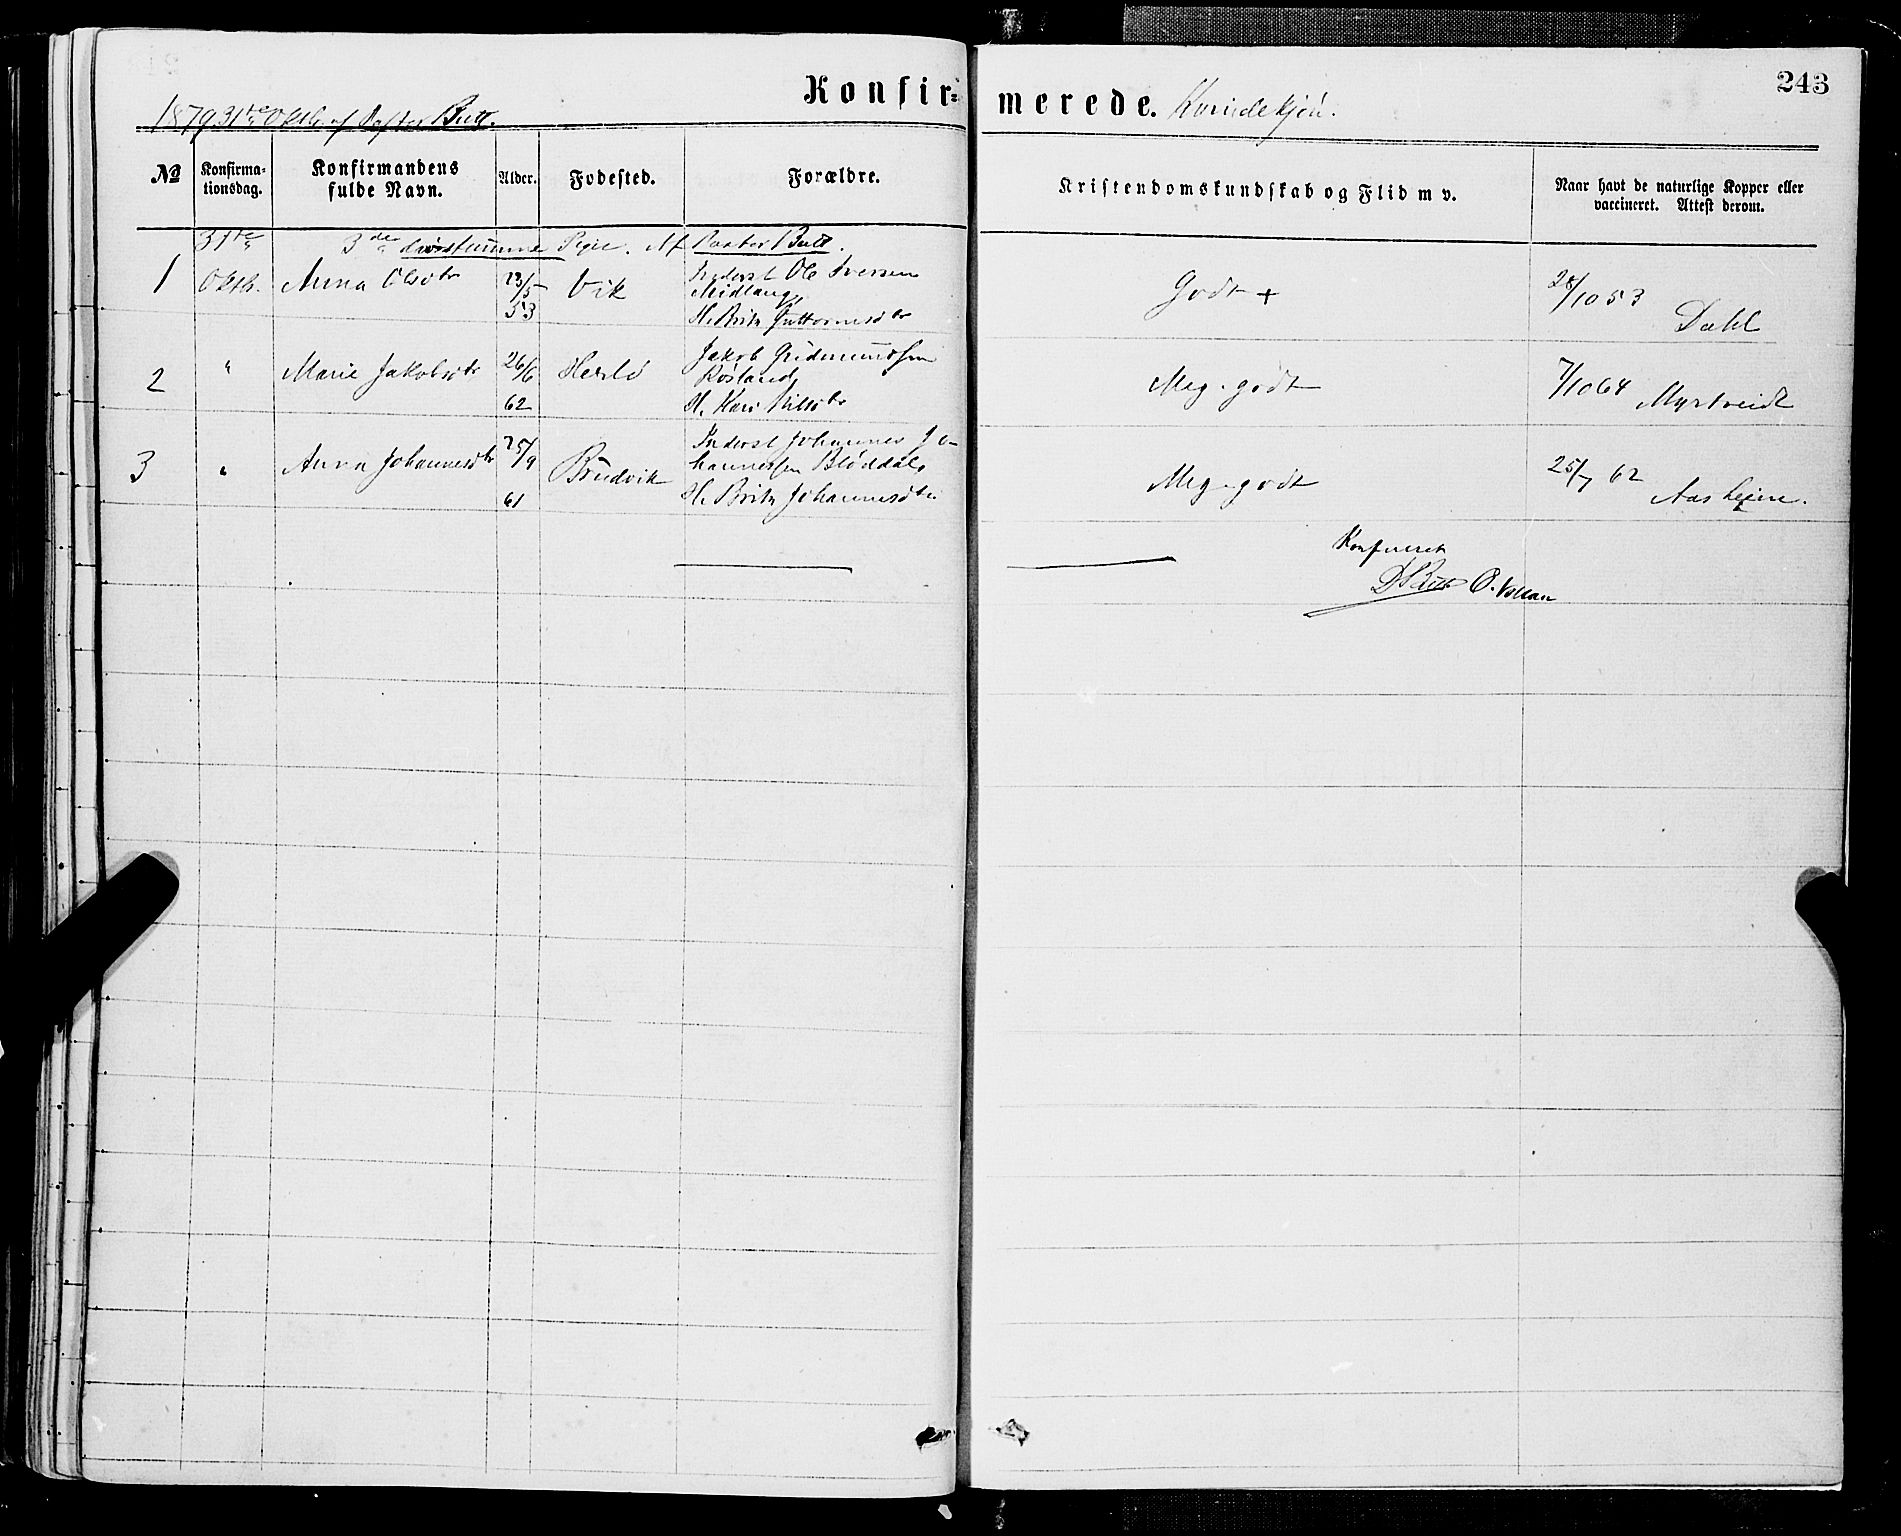 243
Konfirmerede. Kvindekjön.
1879 31te Oktb. af Pastor Bull.
№
Konfirmationsdag.
Konfirmandens fulde Navn.
Alder.
Fodested.
Forældre.
Kristendomskundskab og Flid m v.
Naar havt de naturlige Kopper eller vaccineret. Attest derom.
31te 3de døvstumme Piger. Af Pastor Bull.
1 Oktb. Anna Olsdtr 23/5 53 Vik
Inderst Ole Iversen
Midlang
H. Brita Guttormsdtr
Godt + 28/10 53 Dahl
2 " Marie Jakobsdtr 26/6 62 Herlö
Jakob Gudmundsen
Røsland
H. Kari Nilsdtr
Meg. godt 7/10 64 Myrtveidt
3 " Anna Johannesdtr 25/9 61 Brudvik
Inderst Johannes Jo-
hannessen Bløddal
H. Brita Johannesdtr
Meg. godt 25/7 62 Aasheim.
Konfereret
D Bull O. Vollan